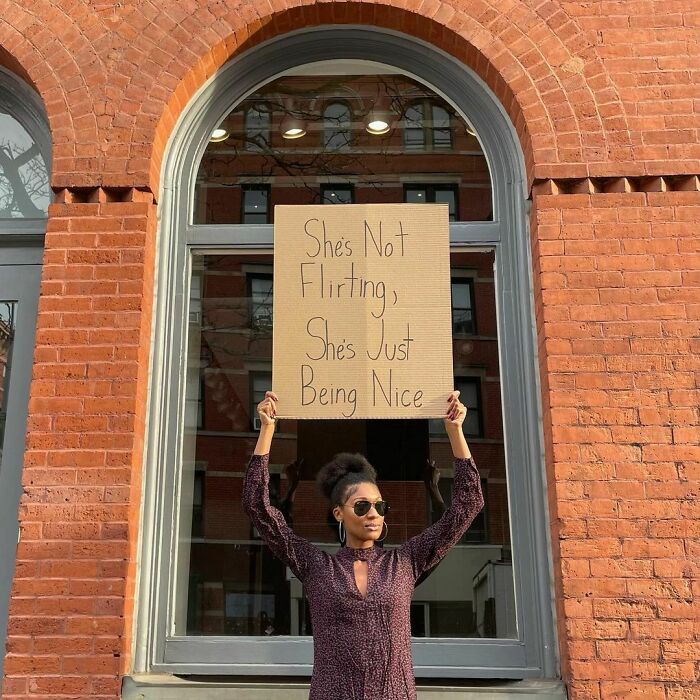 She's Not
Flirting,
She's Just
Being Nice